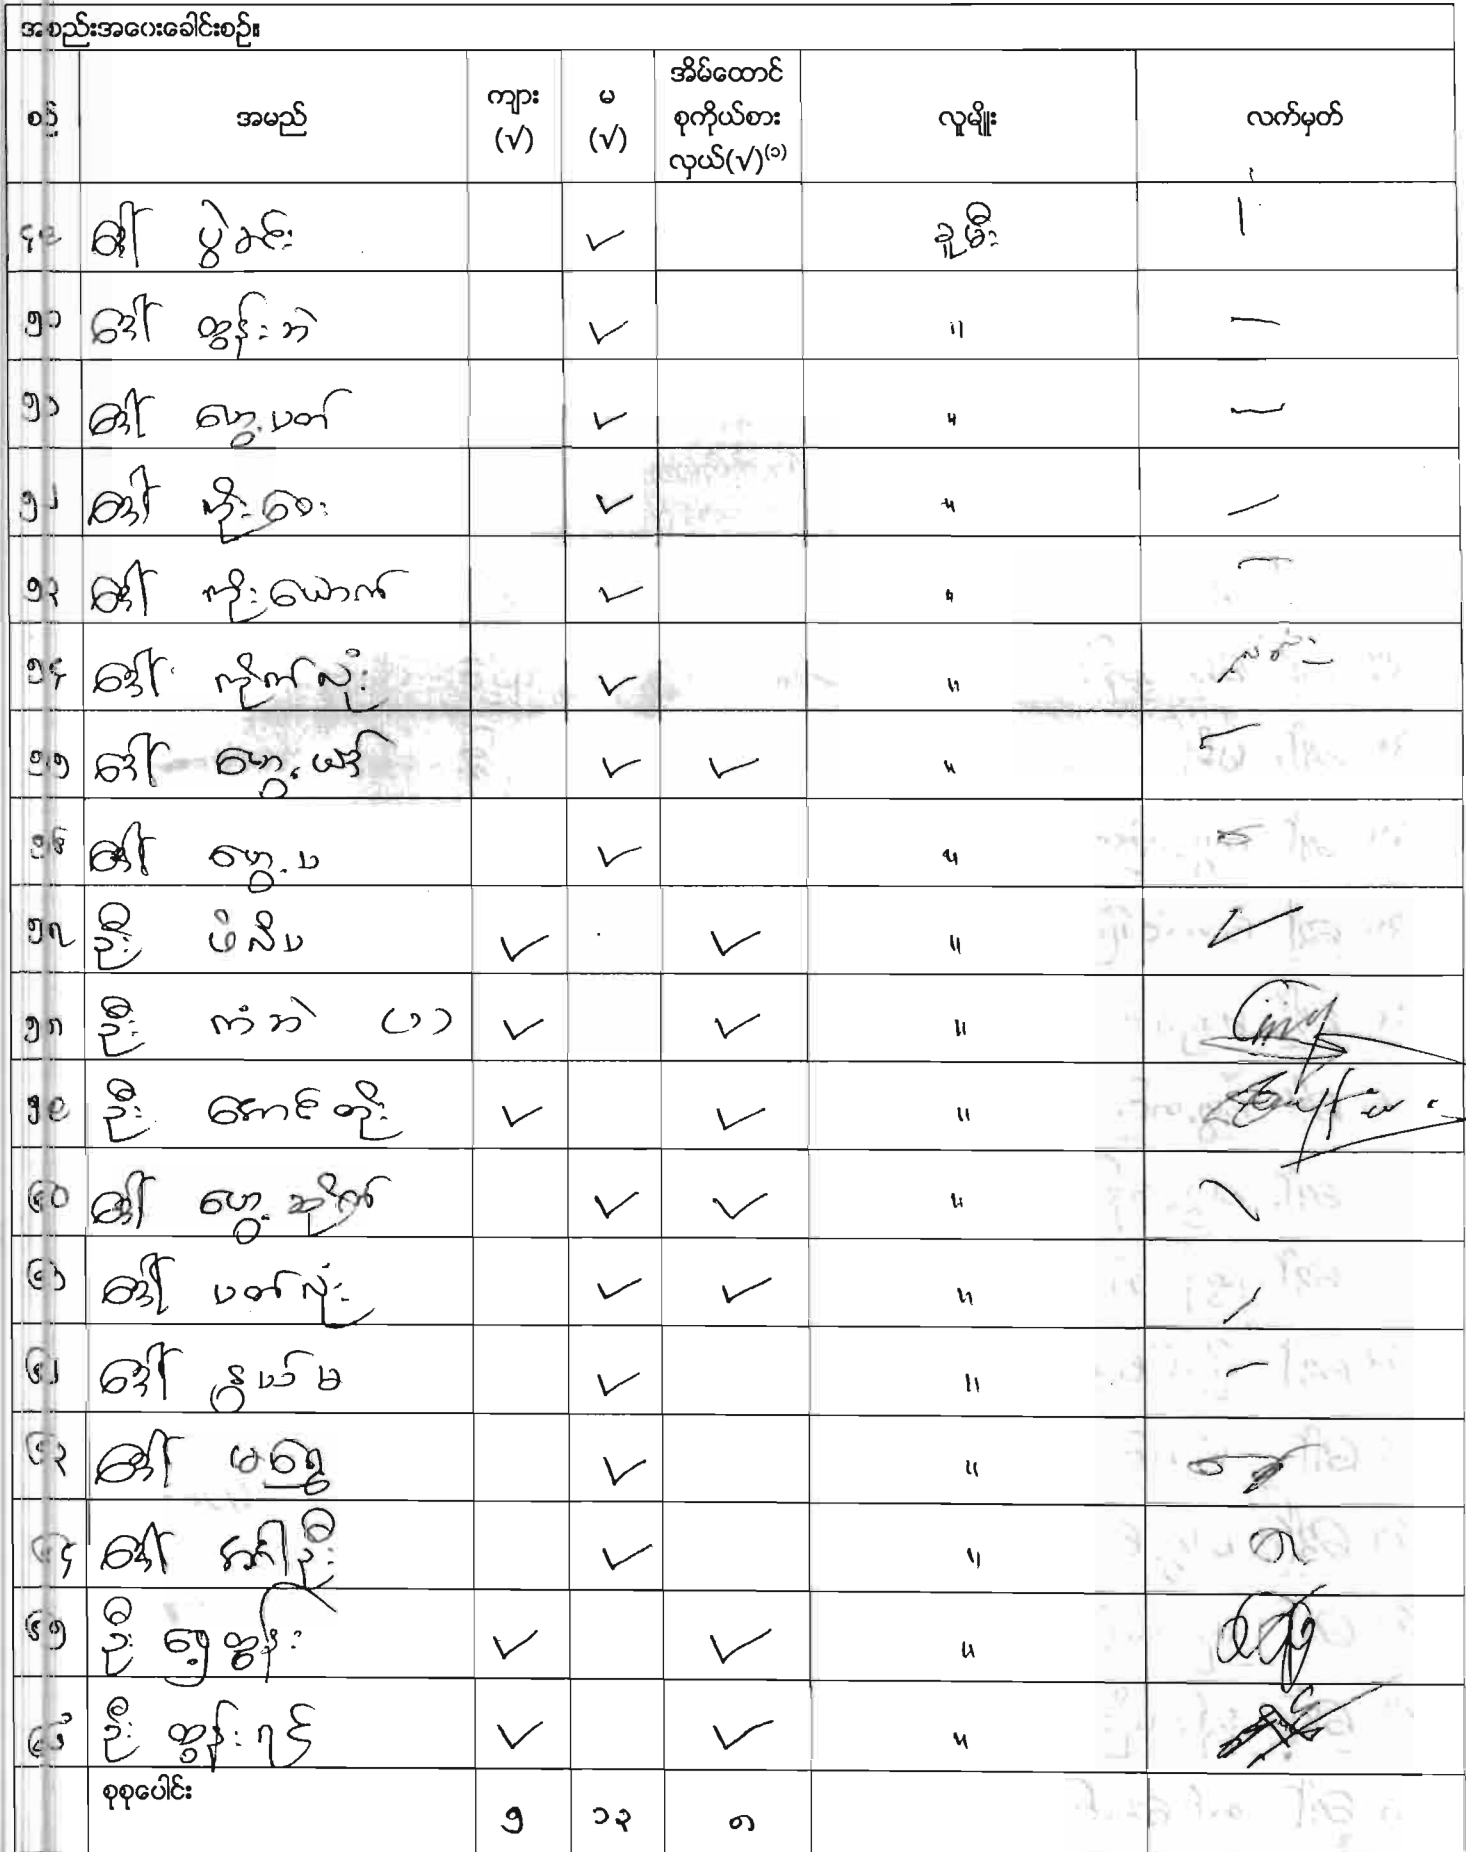 အစည်းအဝေးခေါင်းစဉ်။
စဉ် အမည် ကျား (√) မ (√) အိမ်ထောင်စုကိုယ်စားလှယ်(√)(၁) လူမျိုး လက်မှတ်
၄၉ ဒေါ် ပွဲခင်း ✓ ခူမီး
၅၀ ဒေါ် ထွန်းဘဲ ✓ "
၅၁ ဒေါ် ဟွေ့ပတ် ✓ "
၅၂ ဒေါ် ကိုးဝေး ✓ "
၅၃ ဒေါ် ကိုးယောက် ✓ "
၅၄ ဒေါ် ကိုက်လုံး ✓ "
၅၅ ဒေါ် ဟွေ့ယဒ် ✓ ✓ "
၅၆ ဒေါ် ဟွေ့ပ ✓ "
၅၇ ဦး ဖိလိပ ✓ ✓ "
၅၈ ဦး ကံဘဲ (၁) ✓ ✓ "
၅၉ ဦး အောင်တိုး ✓ ✓ "
၆၀ ဒေါ် ဟွေ့ဆိုက် ✓ ✓ "
၆၁ ဒေါ် ပတ်လုံး ✓ ✓ "
၆၂ ဒေါ် နွယ်မ ✓ "
၆၃ ဒေါ် မရွှေ ✓ "
၆၄ ဒေါ် ✓ "
၆၅ ဦး ရှေ့ထွန်း ✓ ✓ "
၆၆ ဦး ထွန်းရင် ✓ ✓ "
စုစုပေါင်း ၅ ၁၃ ၈